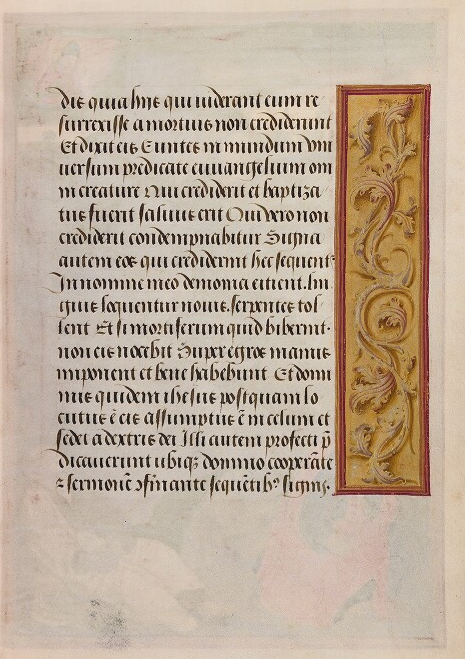 dis quia hiis qui viderant eum re
surrexisse a mortuis non crediderunt
Et dixit eis Euntes in mundum vni
uersum predicate euuangelium om
ni creature Qui crediderit et baptiza
tus fuerit saluus erit Qui vero non
crediderit condempnabitur Signa
autem eos qui crediderint hec sequent᷑
In nomine meo demonia eitient. lin
guis loquentur nouis. serpentes tol
lent Et si mortiferum quid biberint.
non eis nocebit Super egros manus
imponent et bene habebunt Et domi
nus quidem ihesus postquam lo
cutus ē eis assumptus ē in celum et
sedet a dextris dei Illi autem profecti p̄
dicauerunt vbiq₃ domino cooperāte
⁊ sermonē ↄfirmante sequētib₉ signis.